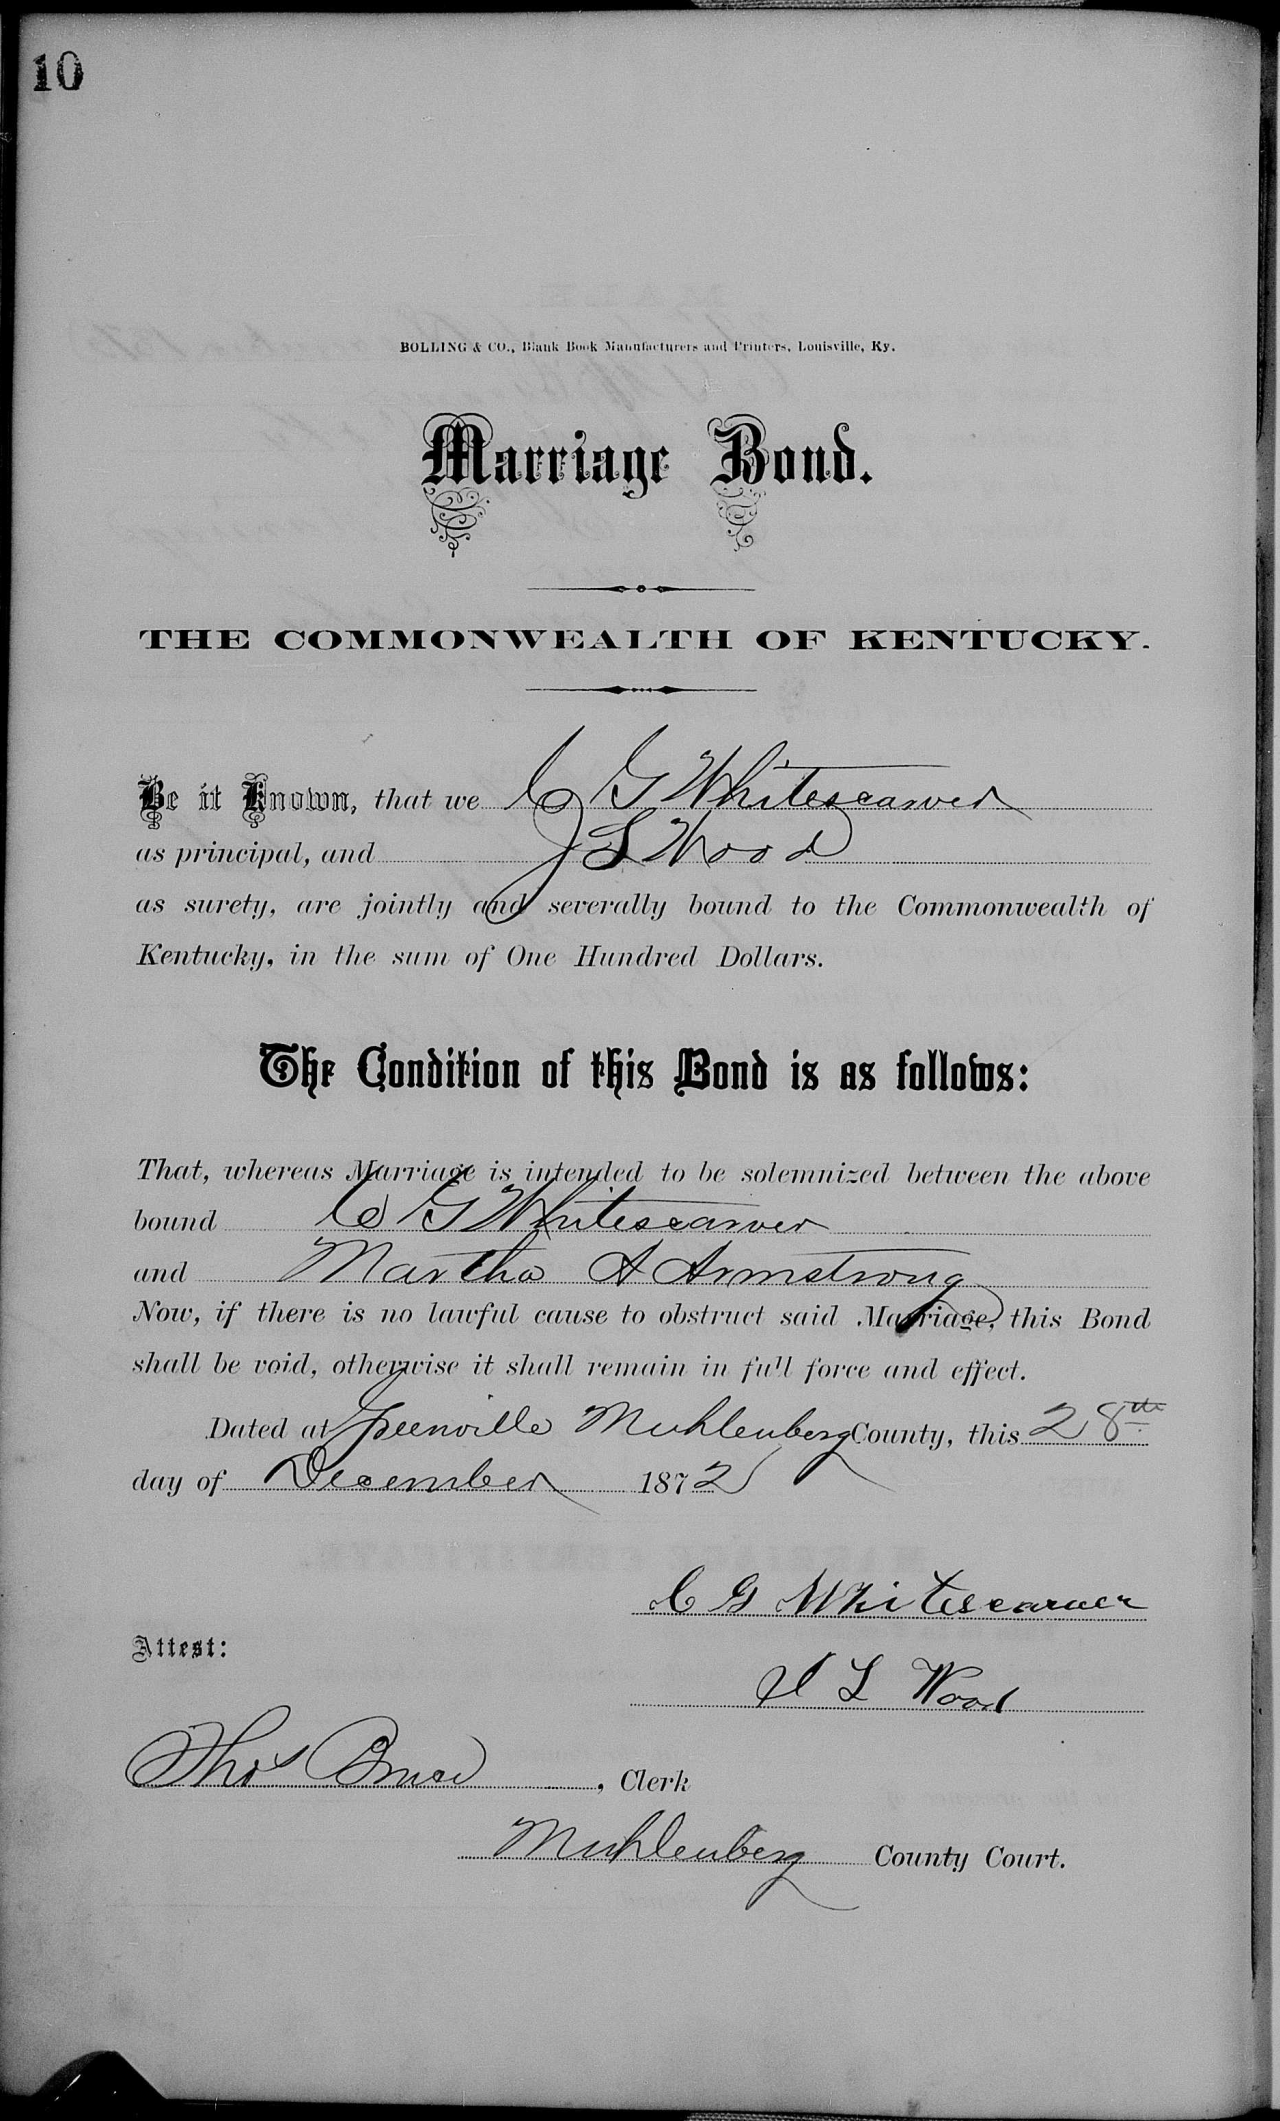 10
BOLLING & CO., Blank Book Manufacturers and Printers, Louisville, Ky.
Marriage Bond.
THE COMMONWEALTH OF KENTUCKY.
Be it Known, that we C G Whitescarver
as principal, and J L Wood
as surety, are jointly and severally bound to the Commonwealth of
Kentucky, in the sum of One Hundred Dollars.
The Condition of this Bond is as follows:
That, whereas Marriage is intended to be solemnized between the above
bound C G Whitescarver
and Martha A Armstrong
Now, if there is no lawful cause to obstruct said Marriage, this Bond
shall be void, otherwise it shall remain in full force and effect.
Dated at Greenville Muhlenberg County, this 28th
day of December 1872
C G Whitescarver
Attest:
J L Wood
Thos Bruce, Clerk
Muhlenberg County Court.